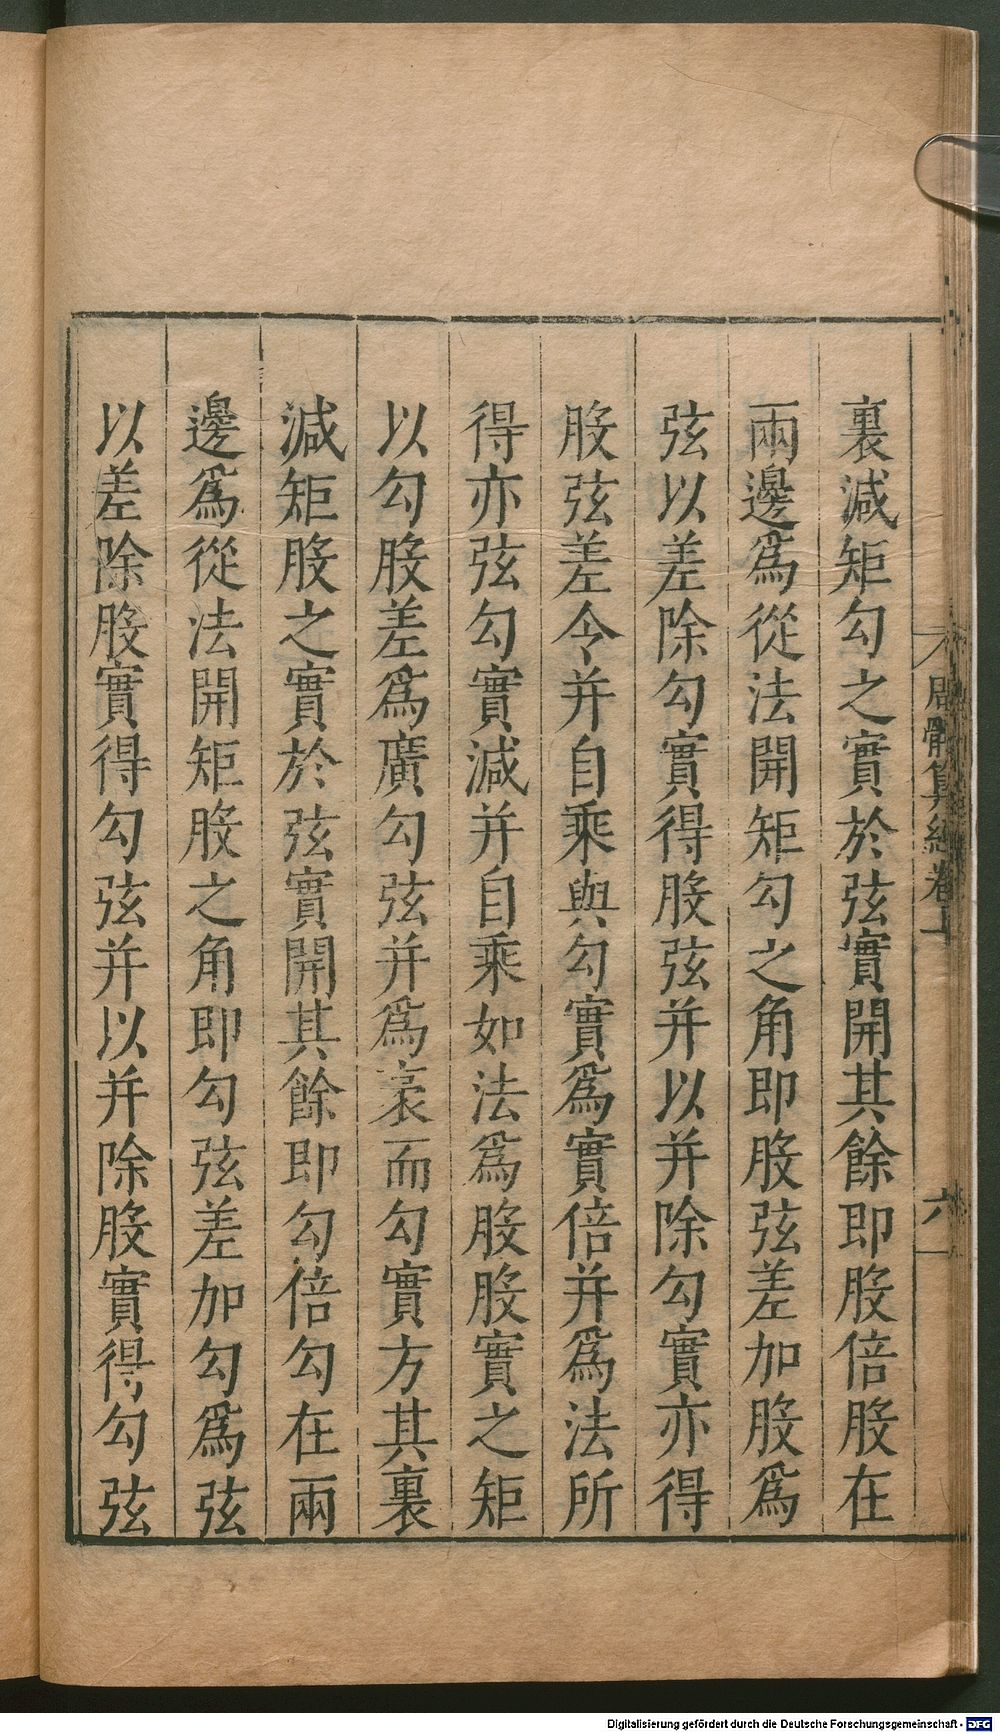 裏減矩勾之實於弦實開其餘即股倍股在
兩邊爲從法開矩勾之角即股弦差加股爲
弦以差除勾實得股弦并以并除勾實亦得
股弦差令并自乘與勾實爲實倍并爲法所
得亦弦勾實減并自乘如法爲股股實之矩
以勾股差爲廣勾弦并爲袤而勾實方其裏
減矩股之實於弦實開其餘即勾倍勾在兩
邊爲從法開矩股之角即勾弦差加勾爲弦
以差除股實得勾弦并以并除股實得勾弦
周髀算經卷上
六
Digitalisierung gefördert durch die Deutsche Forschungsgemeinschaft - DFG